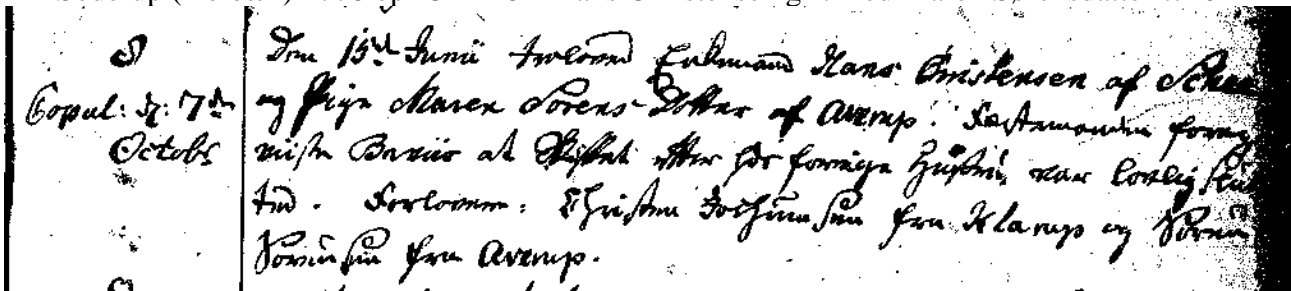 8
Copul: d: 7de
Octobr
Den 15de Junii troloved Enkemand Hans Christensen af
og Pige Maren Sørens Dotter af Averup. Fæstemanden
viiste Beviis at Skiftet efter hds forrige Hustru, var lovlig
ted. Forlovere: Christen Jochumsen fra Klarup og Søren
Sørensen fra Averup.